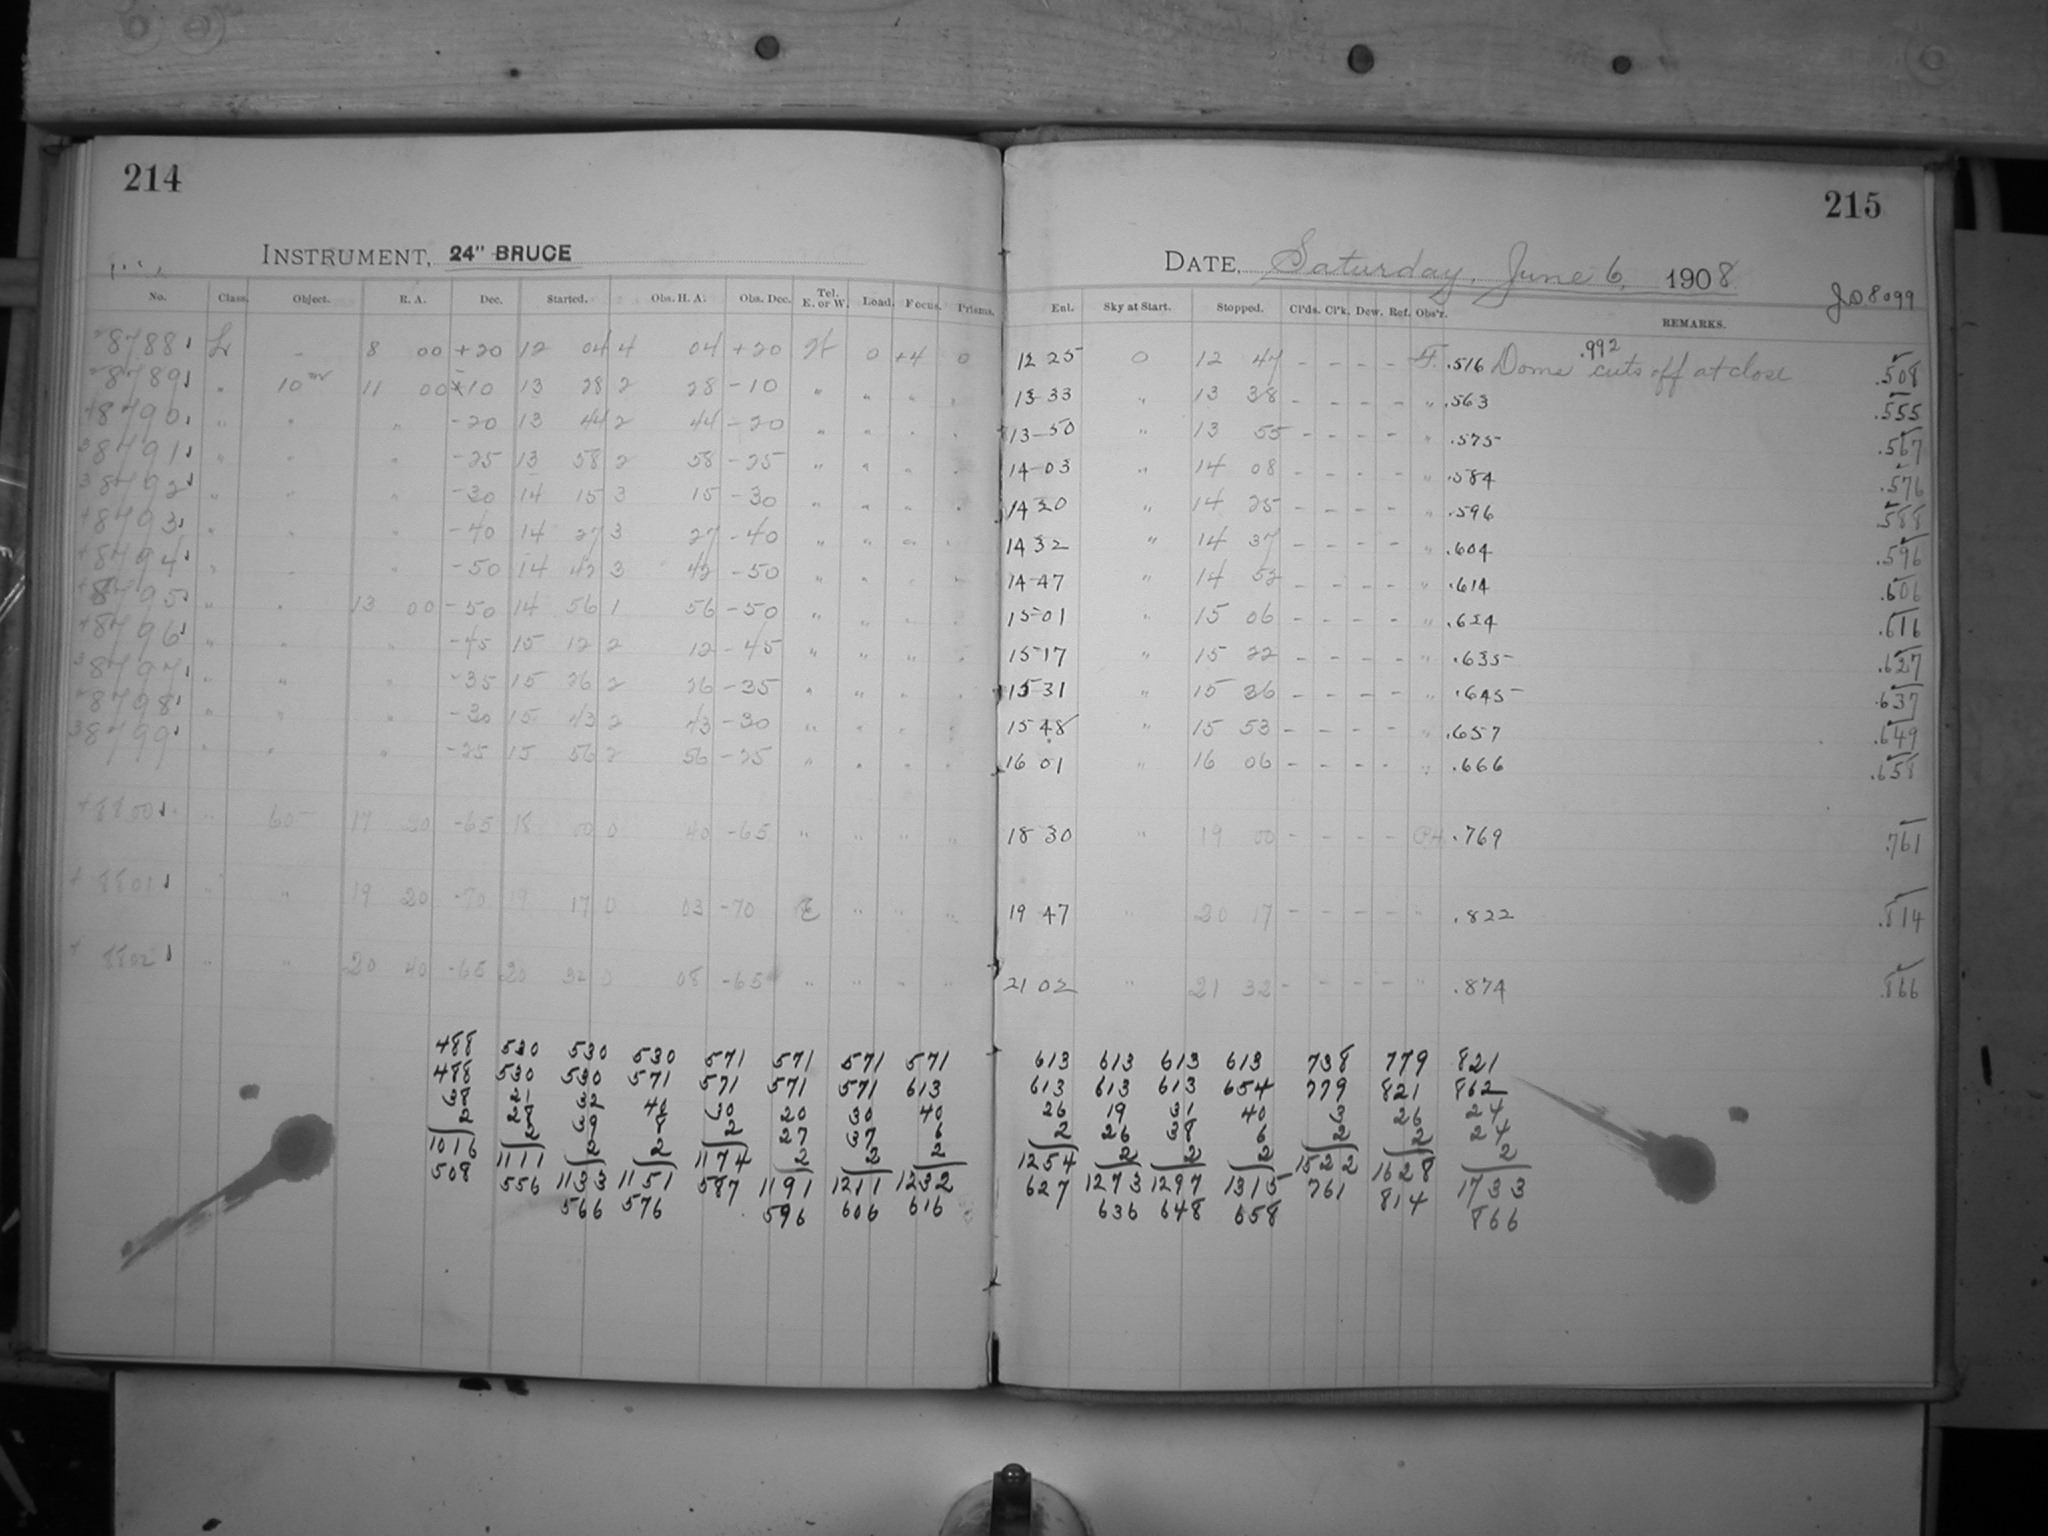 214
INSTRUMENT, 24" BRUCE
No. Class. Object. R. A. Dec. Started. Obs. H. A. Obs. Dec. Tel. E. or W. Load. Focus. Prisms.
8788 L - 8 00 +20 12 04 4 04 +20 W 0 +4 0
8789 " 10m 11 00 -10 13 28 2 28 -10 " " " "
8790 " " " -20 13 44 2 44 -20 " " " "
8791 " " " -25 13 58 2 58 -25 " " " "
8792 " " " -30 14 15 3 15 -30 " " " "
8793 " " " -40 14 27 3 27 -40 " " " "
8794 " " " -50 14 42 3 42 -50 " " " "
8795 " " 13 00 -50 14 56 1 56 -50 " " " "
8796 " " " -45 15 12 2 12 -45 " " " "
8797 " " " -35 15 26 2 26 -35 " " " "
8798 " " " -30 15 43 2 43 -30 " " " "
8799 " " " -25 15 56 2 56 -25 " " " "
8800 " 60 17 20 -65 18 00 0 40 -65 " " " "
8801 " " 19 20 -70 19 17 0 03 -70 E " " "
8802 " " 20 40 -65 20 32 0 08 -65 " " " "
488 530 530 530 571 571 571 571
488 530 530 571 571 571 571 613
38 21 32 48 30 20 30 40
2 28 39 8 2 27 37 6
2 2 2 2 2 2
1016 1111 1133 1151 1174 1191 1211 1232
508 556 566 576 587 596 606 616
215
DATE, Saturday, June 6, 1908.
JD 8099
Enl. Sky at Start. Stopped. Cl'ds. Cl'k. Dew. Ref. Obs'r. REMARKS.
.992
12 25 0 12 47 - - - - F. .516 Dome cuts off at close .508
13 33 " 13 38 - - - - " .563 .555
13-50 " 13 55 - - - - " .575 .567
14-03 " 14 08 - - - - " .584 .576
14 20 " 14 25 - - - - " .596 .588
14 32 " 14 37 - - - - " .604 .596
14-47 " 14 52 - - - - " .614 .606
15-01 " 15 06 - - - - " .624 .616
15 17 " 15 22 - - - - " .635 .627
15 31 " 15 36 - - - - " .645 .637
15 48 " 15 53 - - - - " .657 .649
16 01 " 16 06 - - - - " .666 .658
18 30 " 19 00 - - - - .769 .761
19 47 " 20 17 - - - - " .822 .814
21 02 " 21 32 - - - - " .874 .866
613 613 613 613 738 779 821
613 613 613 654 779 821 862
26 19 31 40 3 26 24
2 26 38 6 2 2 24
2 2 2 2
1254 1273 1297 1315 1522 1628 1733
627 636 648 658 761 814 866